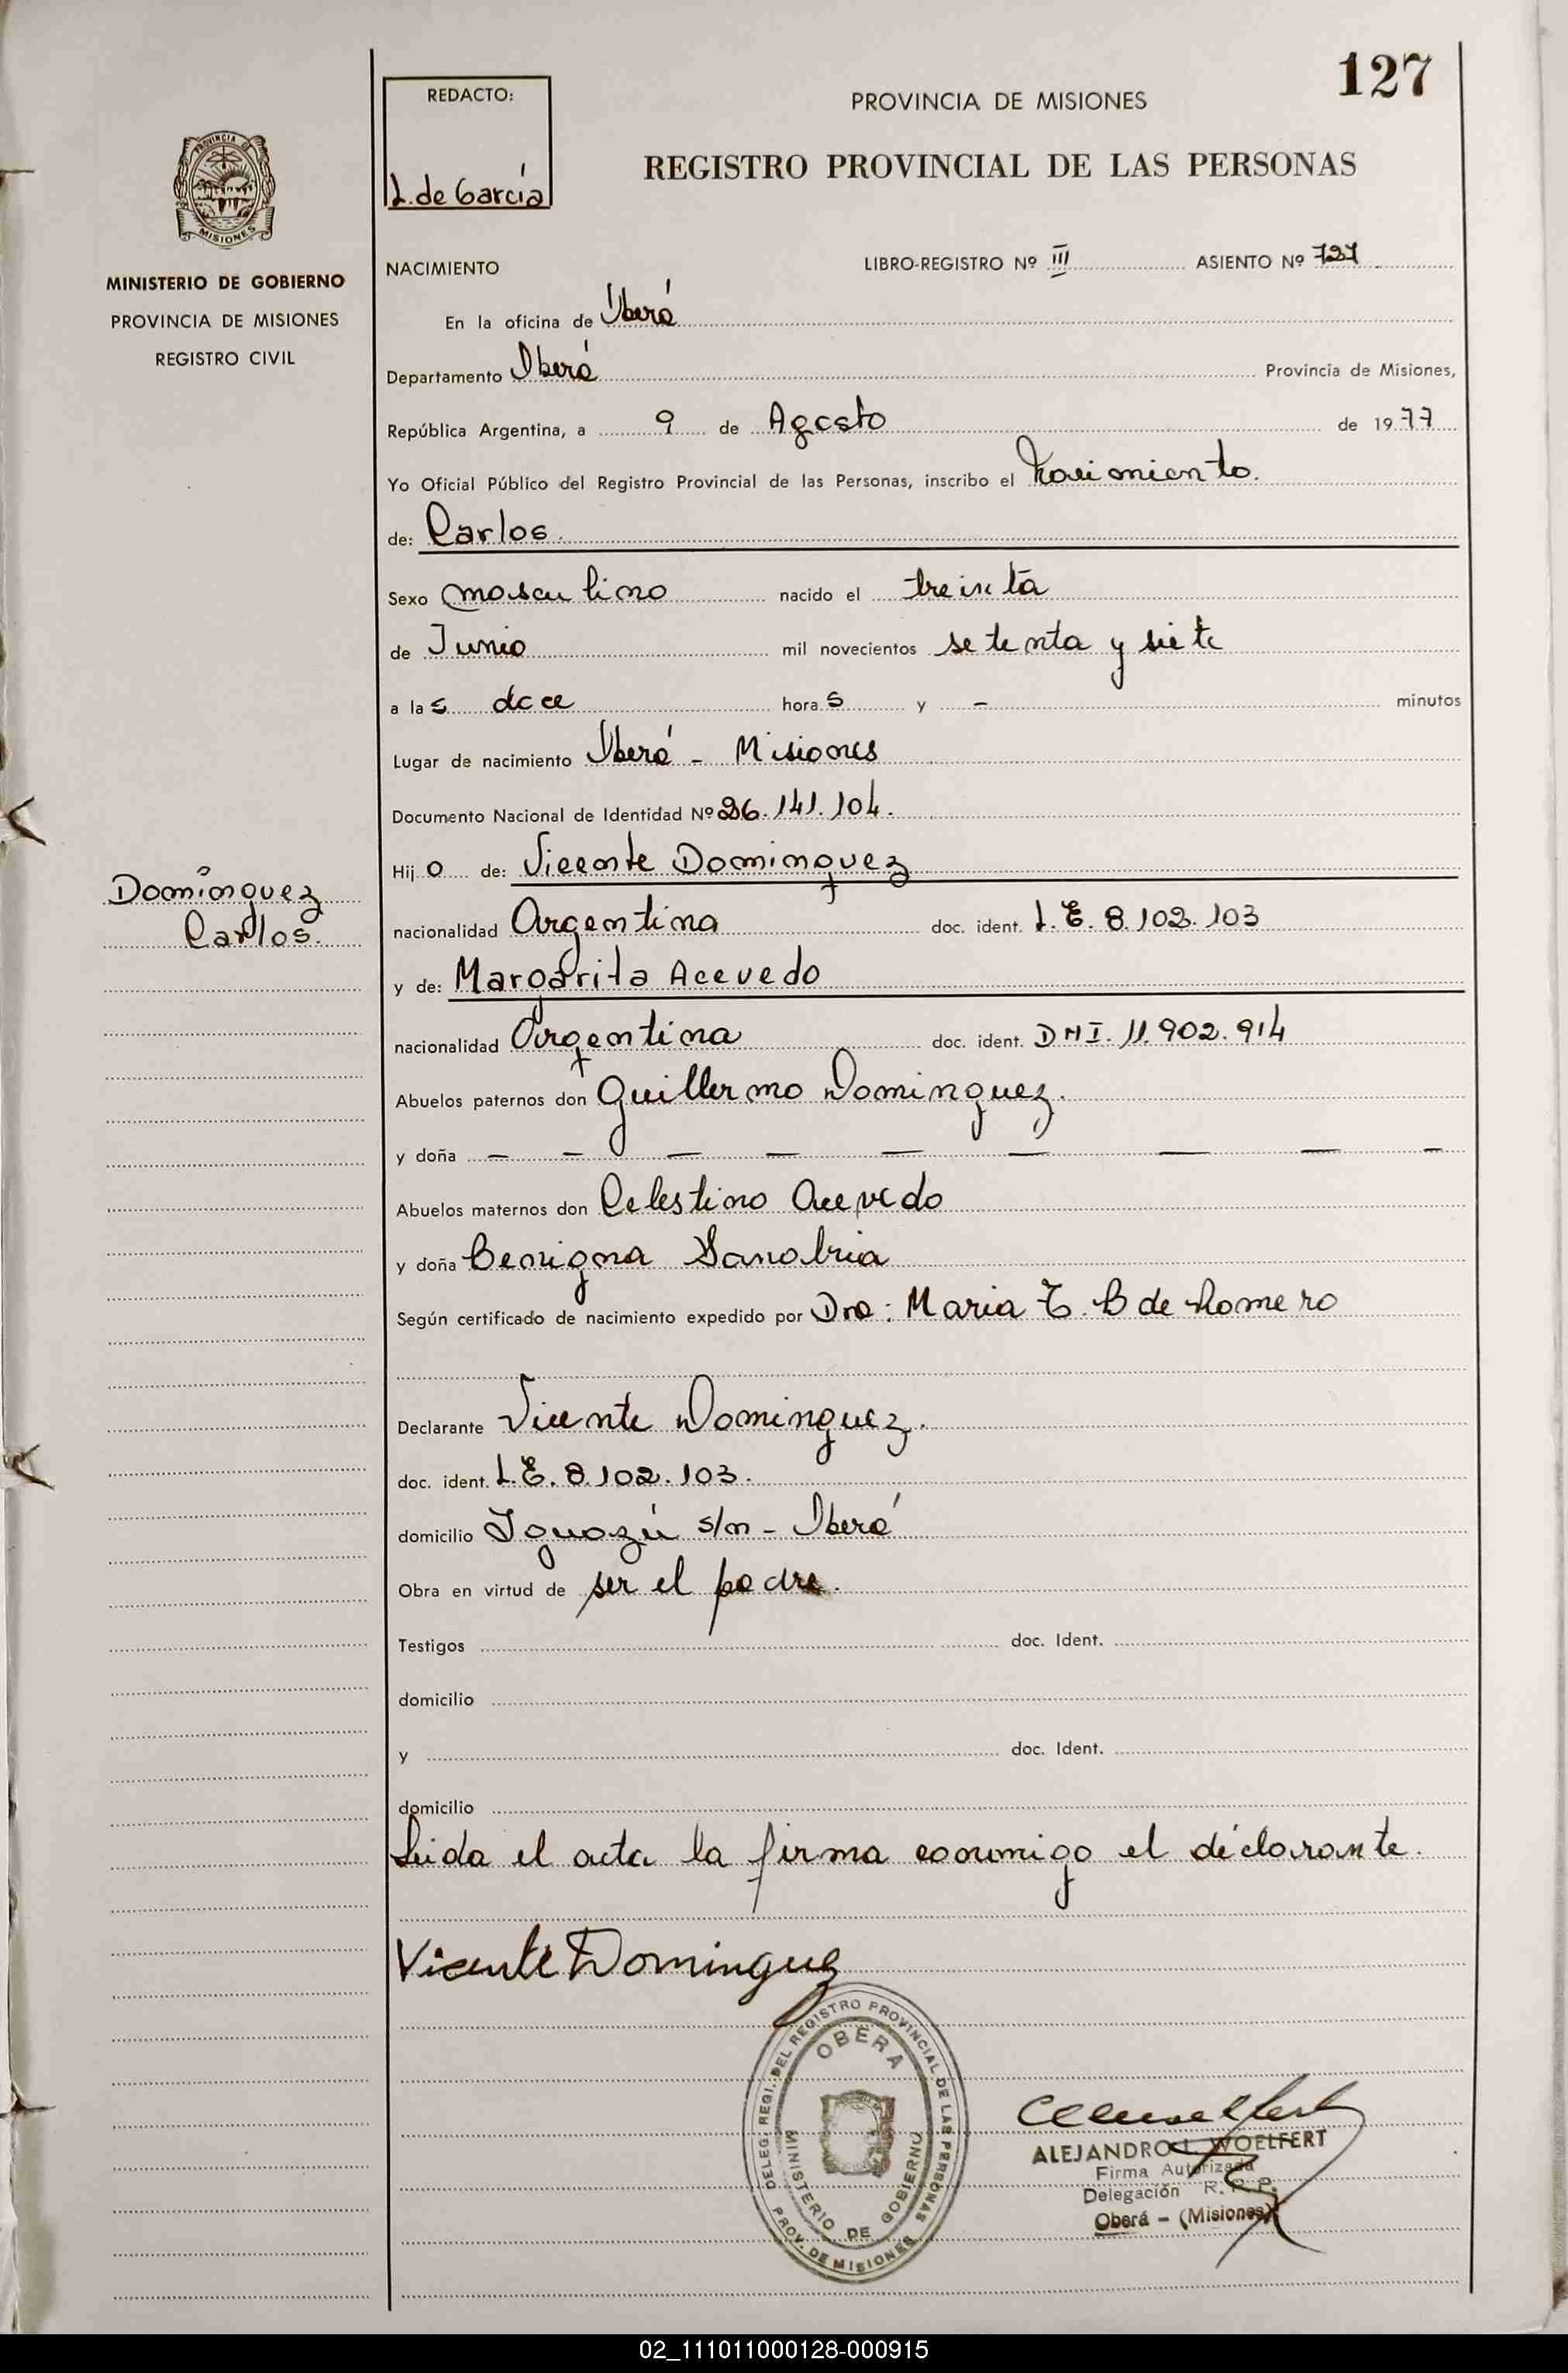 127
REDACTO:
L. de García
PROVINCIA DE MISIONES
REGISTRO PROVINCIAL DE LAS PERSONAS
PROVINCIA DE
MISIONES
MINISTERIO DE GOBIERNO
PROVINCIA DE MISIONES
REGISTRO CIVIL
NACIMIENTO LIBRO-REGISTRO Nº III ASIENTO Nº 727
En la oficina de Oberá
Departamento Oberá Provincia de Misiones,
República Argentina, a 9 de Agosto de 1977
Yo Oficial Público del Registro Provincial de las Personas, inscribo el nacimiento.
de: Carlos.
Sexo masculino nacido el treinta
de Junio mil novecientos setenta y siete
a las doce horas y - minutos
Lugar de nacimiento Oberá - Misiones
Documento Nacional de Identidad Nº 26.141.104.
Hijo de: Vicente Dominguez
Domínguez
Carlos.
nacionalidad Argentina doc. ident. L.E. 8.102.103
y de: Margarita Acevedo
nacionalidad Argentina doc. ident. DNI. 11.902.914
Abuelos paternos don Guillermo Dominguez.
y doña — — — — — — — — —
Abuelos maternos don Celestino Acevedo
y doña Benigna Sanabria
Según certificado de nacimiento expedido por Dra: Maria E. B de Romero
Declarante Vicente Dominguez.
doc. ident. L.E. 8.102.103.
domicilio Iguazú s/n - Oberá
Obra en virtud de ser el padre.
Testigos doc. Ident.
domicilio
y doc. Ident.
domicilio
Leida el acta la firma conmigo el declarante.
Vicente Dominguez
DELEG. REGI. DEL REGISTRO PROVINCIAL DE LAS PERSONAS
PROV. DE MISIONES
OBERA
MINISTERIO DE GOBIERNO
ALEJANDRO L. WOELFERT
Firma Autorizada
Delegación R. P. P.
Oberá - (Misiones)
02_111011000128-000915